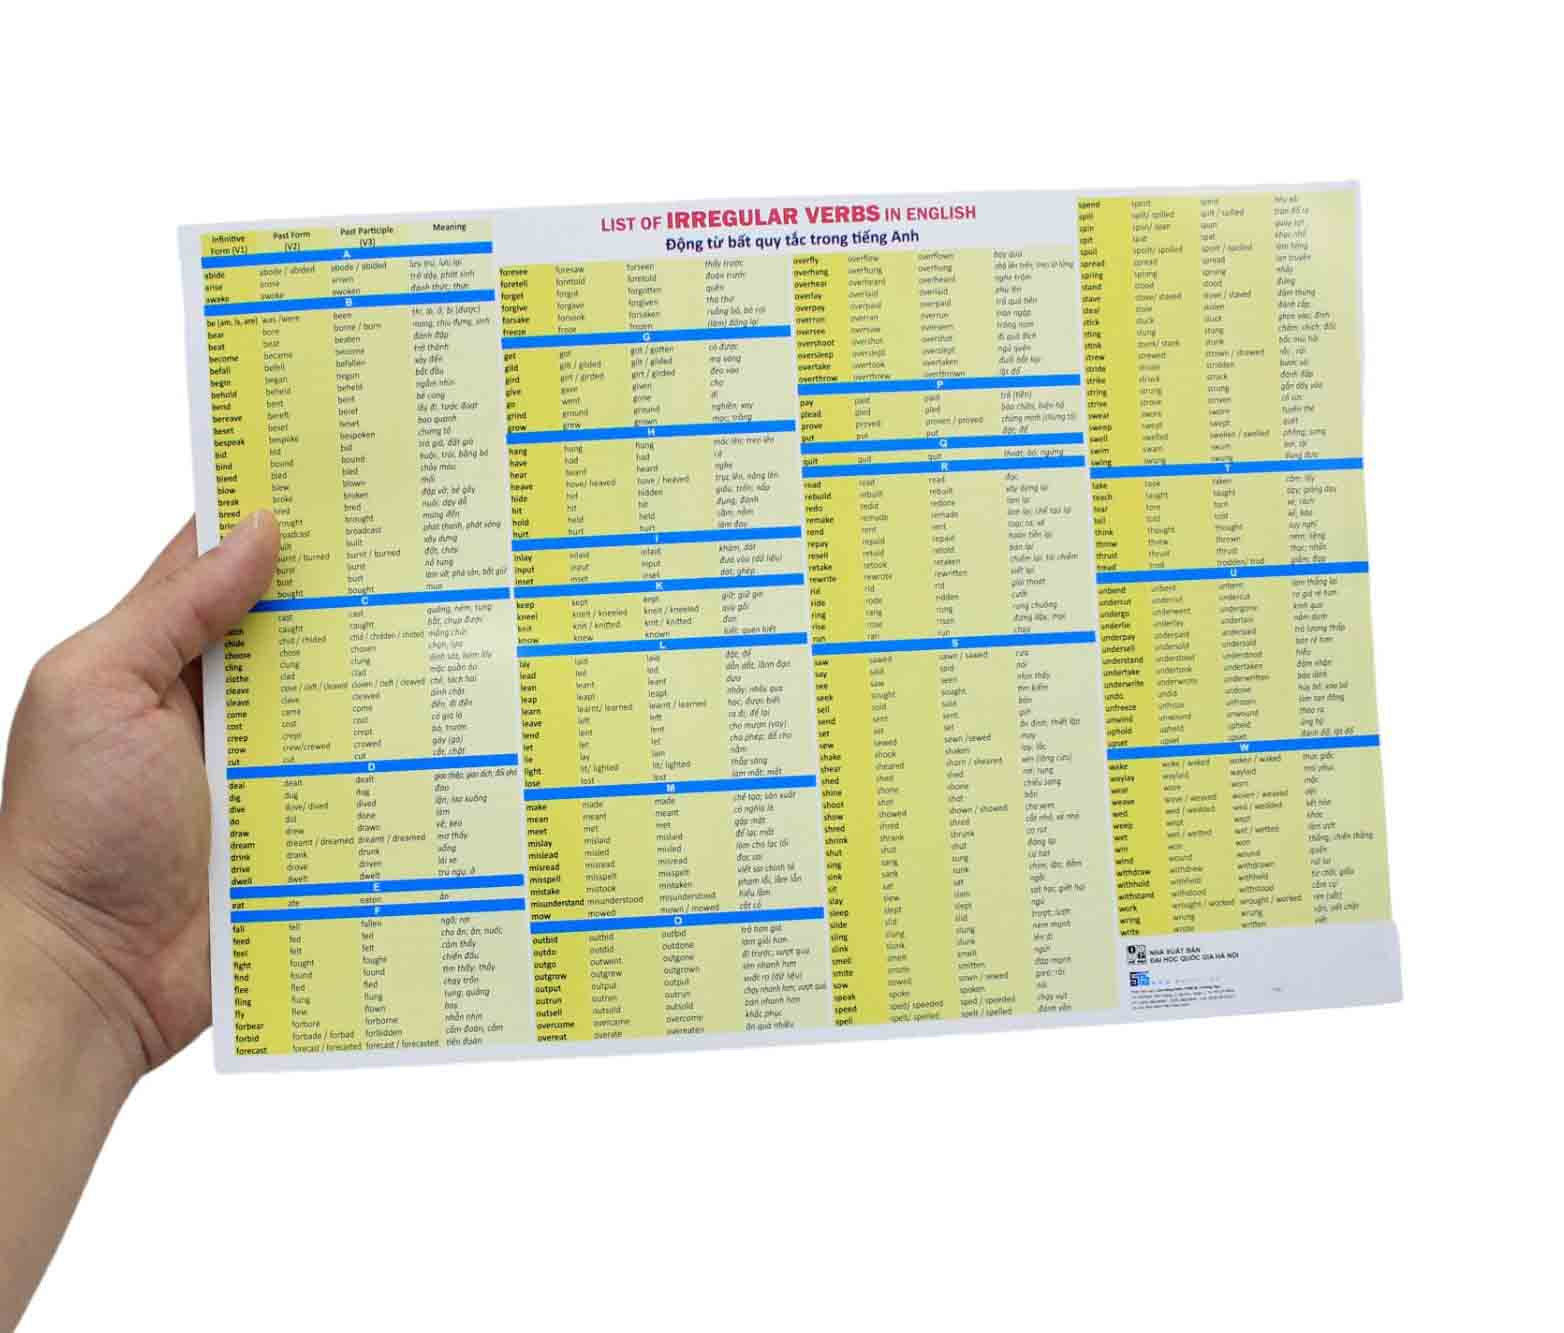 LIST OF IRREGULAR VERBS IN ENGLISH
Động từ bất quy tắc trong tiếng Anh
Infinitive Form (V1) Past Form (V2) Past Participle (V3) Meaning
A
abide abode / abided abode / abided lưu trú, lưu lại
arise arose arisen trở dậy, phát sinh
awake awoke awoken đánh thức, thức
B
be (am, is, are) was /were been thì, là, ở, bị (được)
bear bore borne / born mang, chịu đựng, sinh
beat beat beaten đánh đập
become became become trở thành
befall befell befallen xảy đến
begin began begun bắt đầu
behold beheld beheld ngắm nhìn
bend bent bent bẻ cong
bereave bereft bereft lấy đi, tước đoạt
beset beset beset bao quanh
bespeak bespoke bespoken chứng tỏ
bid bid bid trả giá, đặt giá
bind bound bound buộc, trói, băng bó
bleed bled bled chảy máu
blow blew blown thổi
break broke broken đập vỡ, bẻ gãy
breed bred bred nuôi, dạy dỗ
brought mang đến
broadcast phát thanh, phát sóng
built xây dựng
burnt / burned burnt / burned đốt, cháy
burst burst nổ tung
bust bust
bought bought mua
C
cast cast quăng, ném, tung
caught caught bắt, chụp được
chide chid / chided chid / chidden / chided mắng chửi
choose chose chosen chọn, lựa
cling clung clung dính sát, bám lấy
clothe clad clad mặc quần áo
cleave clove / cleft / cleaved cloven / cleft / cleaved chẻ, tách hai
cleave clave cleaved dính chặt
come came come đến, đi đến
cost cost cost có giá là
creep crept crept bò, trườn
crow crew/crewed crowed gáy (gà)
cut cut cut cắt, chặt
D
deal dealt dealt
dig dug dug đào
dive dove/ dived dived lặn, lao xuống
do did done làm
draw drew drawn vẽ, kéo
dream dreamt / dreamed dreamt / dreamed mơ thấy
drink drank drunk uống
drive drove driven lái xe
dwell dwelt dwelt trú ngụ, ở
E
eat ate eaten ăn
F
fall fell fallen ngã; rơi
feed fed fed cho ăn; ăn; nuôi;
feel felt felt cảm thấy
fight fought fought chiến đấu
find found found tìm thấy; thấy
flee fled fled chạy trốn
fling flung flung tung; quăng
fly flew flown bay
forbear forbore forborne nhẫn nhịn
forbid forbade / forbad forbidden cấm đoán, cấm
forecast forecast / forecasted forecast / forecasted tiên đoán
foresee foresaw forseen thấy trước
foretell foretold foretold đoán trước
forget forgot forgotten quên
forgive forgave forgiven tha thứ
forsake forsook forsaken ruồng bỏ, bỏ rơi
freeze froze frozen (làm) đông lại
G
get got got / gotten có được
gild gilt / gilded gilt / gilded mạ vàng
gird girt / girded girt / girded đeo vào
give gave given cho
go went gone đi
grind ground ground nghiền; xay
grow grew grown mọc; trồng
H
hang hung hung móc lên; treo lên
have had had có
hear heard heard nghe
heave hove/ heaved hove/ heaved trục lên, nâng lên
hide hid hidden giấu, trốn; nấp
hit hit hit đụng, đánh
hold held held cầm; nắm
hurt hurt hurt làm đau
I
inlay inlaid inlaid khảm, dát
input input input đưa vào (dữ liệu)
inset inset inset dát; ghép
K
keep kept kept giữ; giữ gìn
kneel knelt / kneeled knelt / kneeled quỳ gối
knit knit / knitted knit / knitted đan
know knew known biết; quen biết
L
lay laid laid đặt, để
lead led led dẫn dắt, lãnh đạo
lean leant leant dựa
leap leapt leapt nhảy; nhảy qua
learn learnt/ learned learnt / learned học; được biết
leave left left ra đi; để lại
lend lent lent cho mượn (vay)
let let let cho phép; để cho
lie lay lain nằm
light lit/ lighted lit/ lighted thắp sáng
lose lost lost làm mất; mất
M
make made made chế tạo; sản xuất
mean meant meant có nghĩa là
meet met met gặp mặt
mislay mislaid mislaid để lạc mất
mislead misled misled làm cho lạc lối
misread misread misread đọc sai
misspell misspelt misspelt viết sai chính tả
mistake mistook mistaken phạm lỗi, lầm lẫn
misunderstand misunderstood misunderstood hiểu lầm
mow mowed mown / mowed cắt cỏ
O
outbid outbid outbid trả hơn giá
outdo outdid outdone làm giỏi hơn
outgo outwent outgone đi trước; vượt quá
outgrow outgrew outgrown lớn nhanh hơn
output output output xuất ra (dữ liệu)
outrun outran outrun chạy nhanh hơn; vượt quá
outsell outsold outsold bán nhanh hơn
overcome overcame overcome khắc phục
overeat overate overeaten ăn quá nhiều
overfly overflew overflown bay qua
overhang overhung overhung
overhear overheard overheard nghe trộm
overlay overlaid overlaid phủ lên
overpay overpaid overpaid trả quá tiền
overrun overran overrun tràn ngập
oversee oversaw overseen trông nom
overshoot overshot overshot đi quá đích
oversleep overslept overslept ngủ quên
overtake overtook overtaken đuổi bắt kịp
overthrow overthrew overthrown lật đổ
P
pay paid paid trả (tiền)
plead pled pled bào chữa, biện hộ
prove proved proven / proved chứng minh (chứng tỏ)
put put put đặt; để
Q
quit quit quit thoát, bỏ, ngừng
R
read read read đọc
rebuild rebuilt rebuilt xây dựng lại
redo redid redone làm lại
remake remade remade làm lại; chế tạo lại
rend rent rent toạc ra; xé
repay repaid repaid hoàn tiền lại
resell resold resold bán lại
retake retook retaken chiếm lại; tái chiếm
rewrite rewrote rewritten viết lại
rid rid rid giải thoát
ride rode ridden cưỡi
ring rang rung rung chuông
rise rose risen đứng dậy; mọc
run ran run chạy
S
saw sawed sawn / sawed cưa
say said said nói
see saw seen nhìn thấy
seek sought sought tìm kiếm
sell sold sold bán
send sent sent gửi
set set set ấn định; thiết lập
sew sewed sewn /sewed may
shake shook shaken lay; lắc
shear sheared shorn / sheared xén (lông cừu)
shed shed shed rơi; rụng
shine shone shone chiếu sáng
shoot shot shot bắn
show showed shown / showed cho xem
shred shred shred cắt nhỏ, xé nhỏ
shrink shrank shrunk co rút
shut shut shut đóng lại
sing sang sung ca hát
sink sank sunk chìm; lặn; đắm
sit sat sat ngồi
slay slew slain sát hại; giết hại
sleep slept slept ngủ
slide slid slid trượt; lướt
sling slung slung ném mạnh
slink slunk slunk lẻn đi
smell smelt smelt ngửi
smite smote smitten đập mạnh
sow sowed sown / sewed gieo; rải
speak spoke spoken nói
speed sped/ speeded sped / speeded chạy vụt
spell spelt/ spelled spelt / spelled đánh vần
spend spent spent tiêu xài
spill spilt/ spilled spilt / spilled tràn đổ ra
spin spun/ span spun quay sợi
spit spat spat khạc nhổ
spoil spoilt/ spoiled spoilt / spoiled làm hỏng
spread spread spread lan truyền
spring sprang sprung nhảy
stand stood stood đứng
stave stove/ staved stove / staved đâm thủng
steal stole stolen đánh cắp
stick stuck stuck ghim vào; đính
sting stung stung châm; chích; đốt
stink stunk/ stank stunk bốc mùi hôi
strew strewed strewn / strewed rắc , rải
stride strode stridden bước sải
strike struck struck đánh đập
string strung strung gắn dây vào
strive strove striven cố sức
swear swore sworn tuyên thệ
sweep swept swept quét
swell swelled swollen / swelled phồng; sưng
swim swam swum bơi, lội
swing swung swung đong đưa
T
take took taken cầm; lấy
teach taught taught dạy; giảng dạy
tear tore torn xé; rách
tell told told kể; bảo
think thought thought suy nghĩ
throw threw thrown ném; liệng
thrust thrust thrust thọc; nhấn
tread trod trodden/ trod giẫm; đạp
U
unbend unbent unbent làm thẳng lại
undercut undercut undercut ra giá rẻ hơn
undergo underwent undergone kinh qua
underlie underlay underlain nằm dưới
underpay underpaid underpaid trả lương thấp
undersell undersold undersold bán rẻ hơn
understand understood understood hiểu
undertake undertook undertaken đảm nhận
underwrite underwrote underwritten bảo hiểm
undo undid undone
unfreeze unfroze unfrozen làm tan đông
unwind unwound unwound tháo ra
uphold upheld upheld ủng hộ
upset upset upset đánh đổ, lật đổ
W
wake woke / waked woken / waked thức giấc
waylay waylaid waylaid mai phục
wear wore worn mặc
weave wove / weaved woven / weaved dệt
wed wed / wedded wed / wedded kết hôn
weep wept wept khóc
wet wet / wetted wet / wetted làm ướt
win won won thắng; chiến thắng
wind wound wound quấn
withdraw withdrew withdrawn rút lui
withhold withheld withheld từ chối, giấu
withstand withstood withstood cầm cự
work wrought / worked wrought / worked rèn (sắt)
wring wrung wrung vặn, siết chặt
write wrote written viết
NHÀ XUẤT BẢN
ĐẠI HỌC QUỐC GIA HÀ NỘI